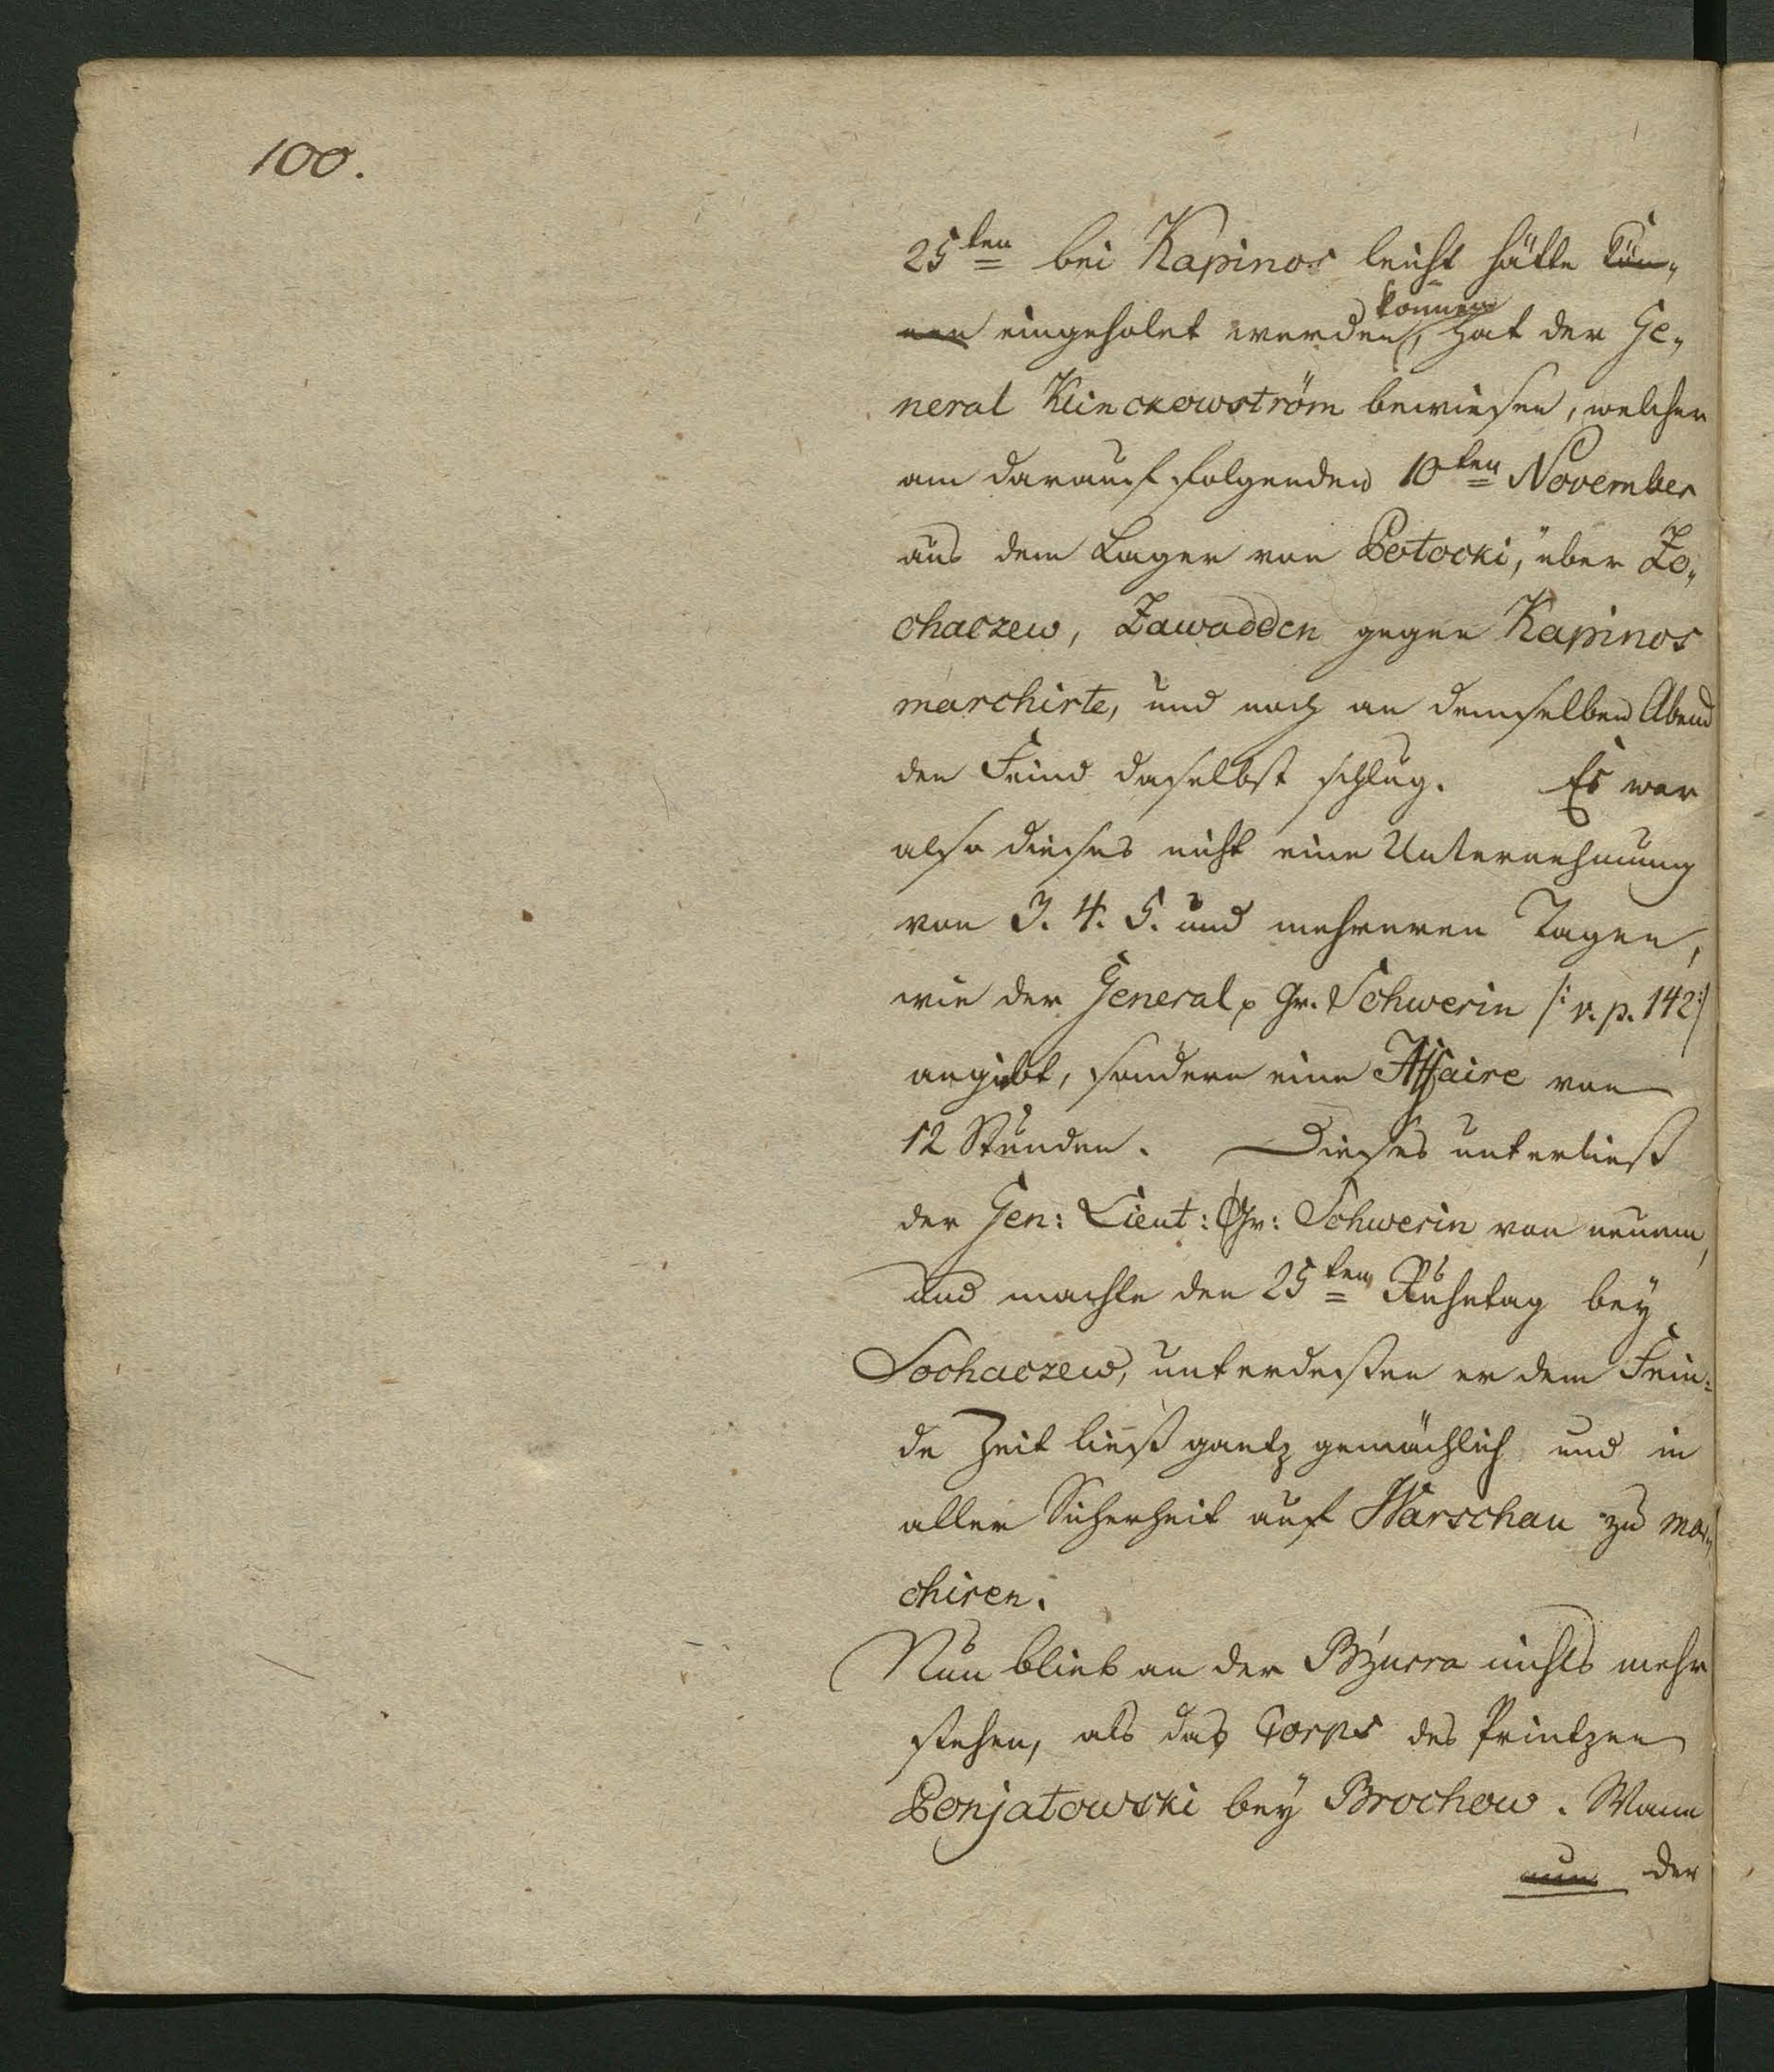 100.
25ten bei Kapinos leicht hätte kön-
nen eingeholet werden, hat der Ge-
können
neral Klinckowström bewiesen, welcher
am darauf folgenden 10ten November
aus dem Lager von Potocki, über Zo-
chaczew, Zawadden gegen Kapinos
marchirte, und noch an demselben Abend
den Feind daselbst schlug. Es war
also dieses nicht eine Unternehmung
von 3. 4. 5. und mehreren Tagen,
wie der General p Gr. Schwerin /: v. p. 142 :/
angibt, sondern eine Affaire von
12 Stunden. Dieses unterließ
der Gen: Lieut: Gr: Schwerin von neuem,
und machte den 25ten Ruhetag bey
Sochaczew, unterdeßen er dem Fein-
de Zeit ließ gantz gemächlich und in
aller Sicherheit auf Warschau zu mar-
chiren.
Nun blieb an der Bzurra nichts mehr
stehen, als das Corps des Printzen
Ponjatowski bey Brochow. Wann
nun der